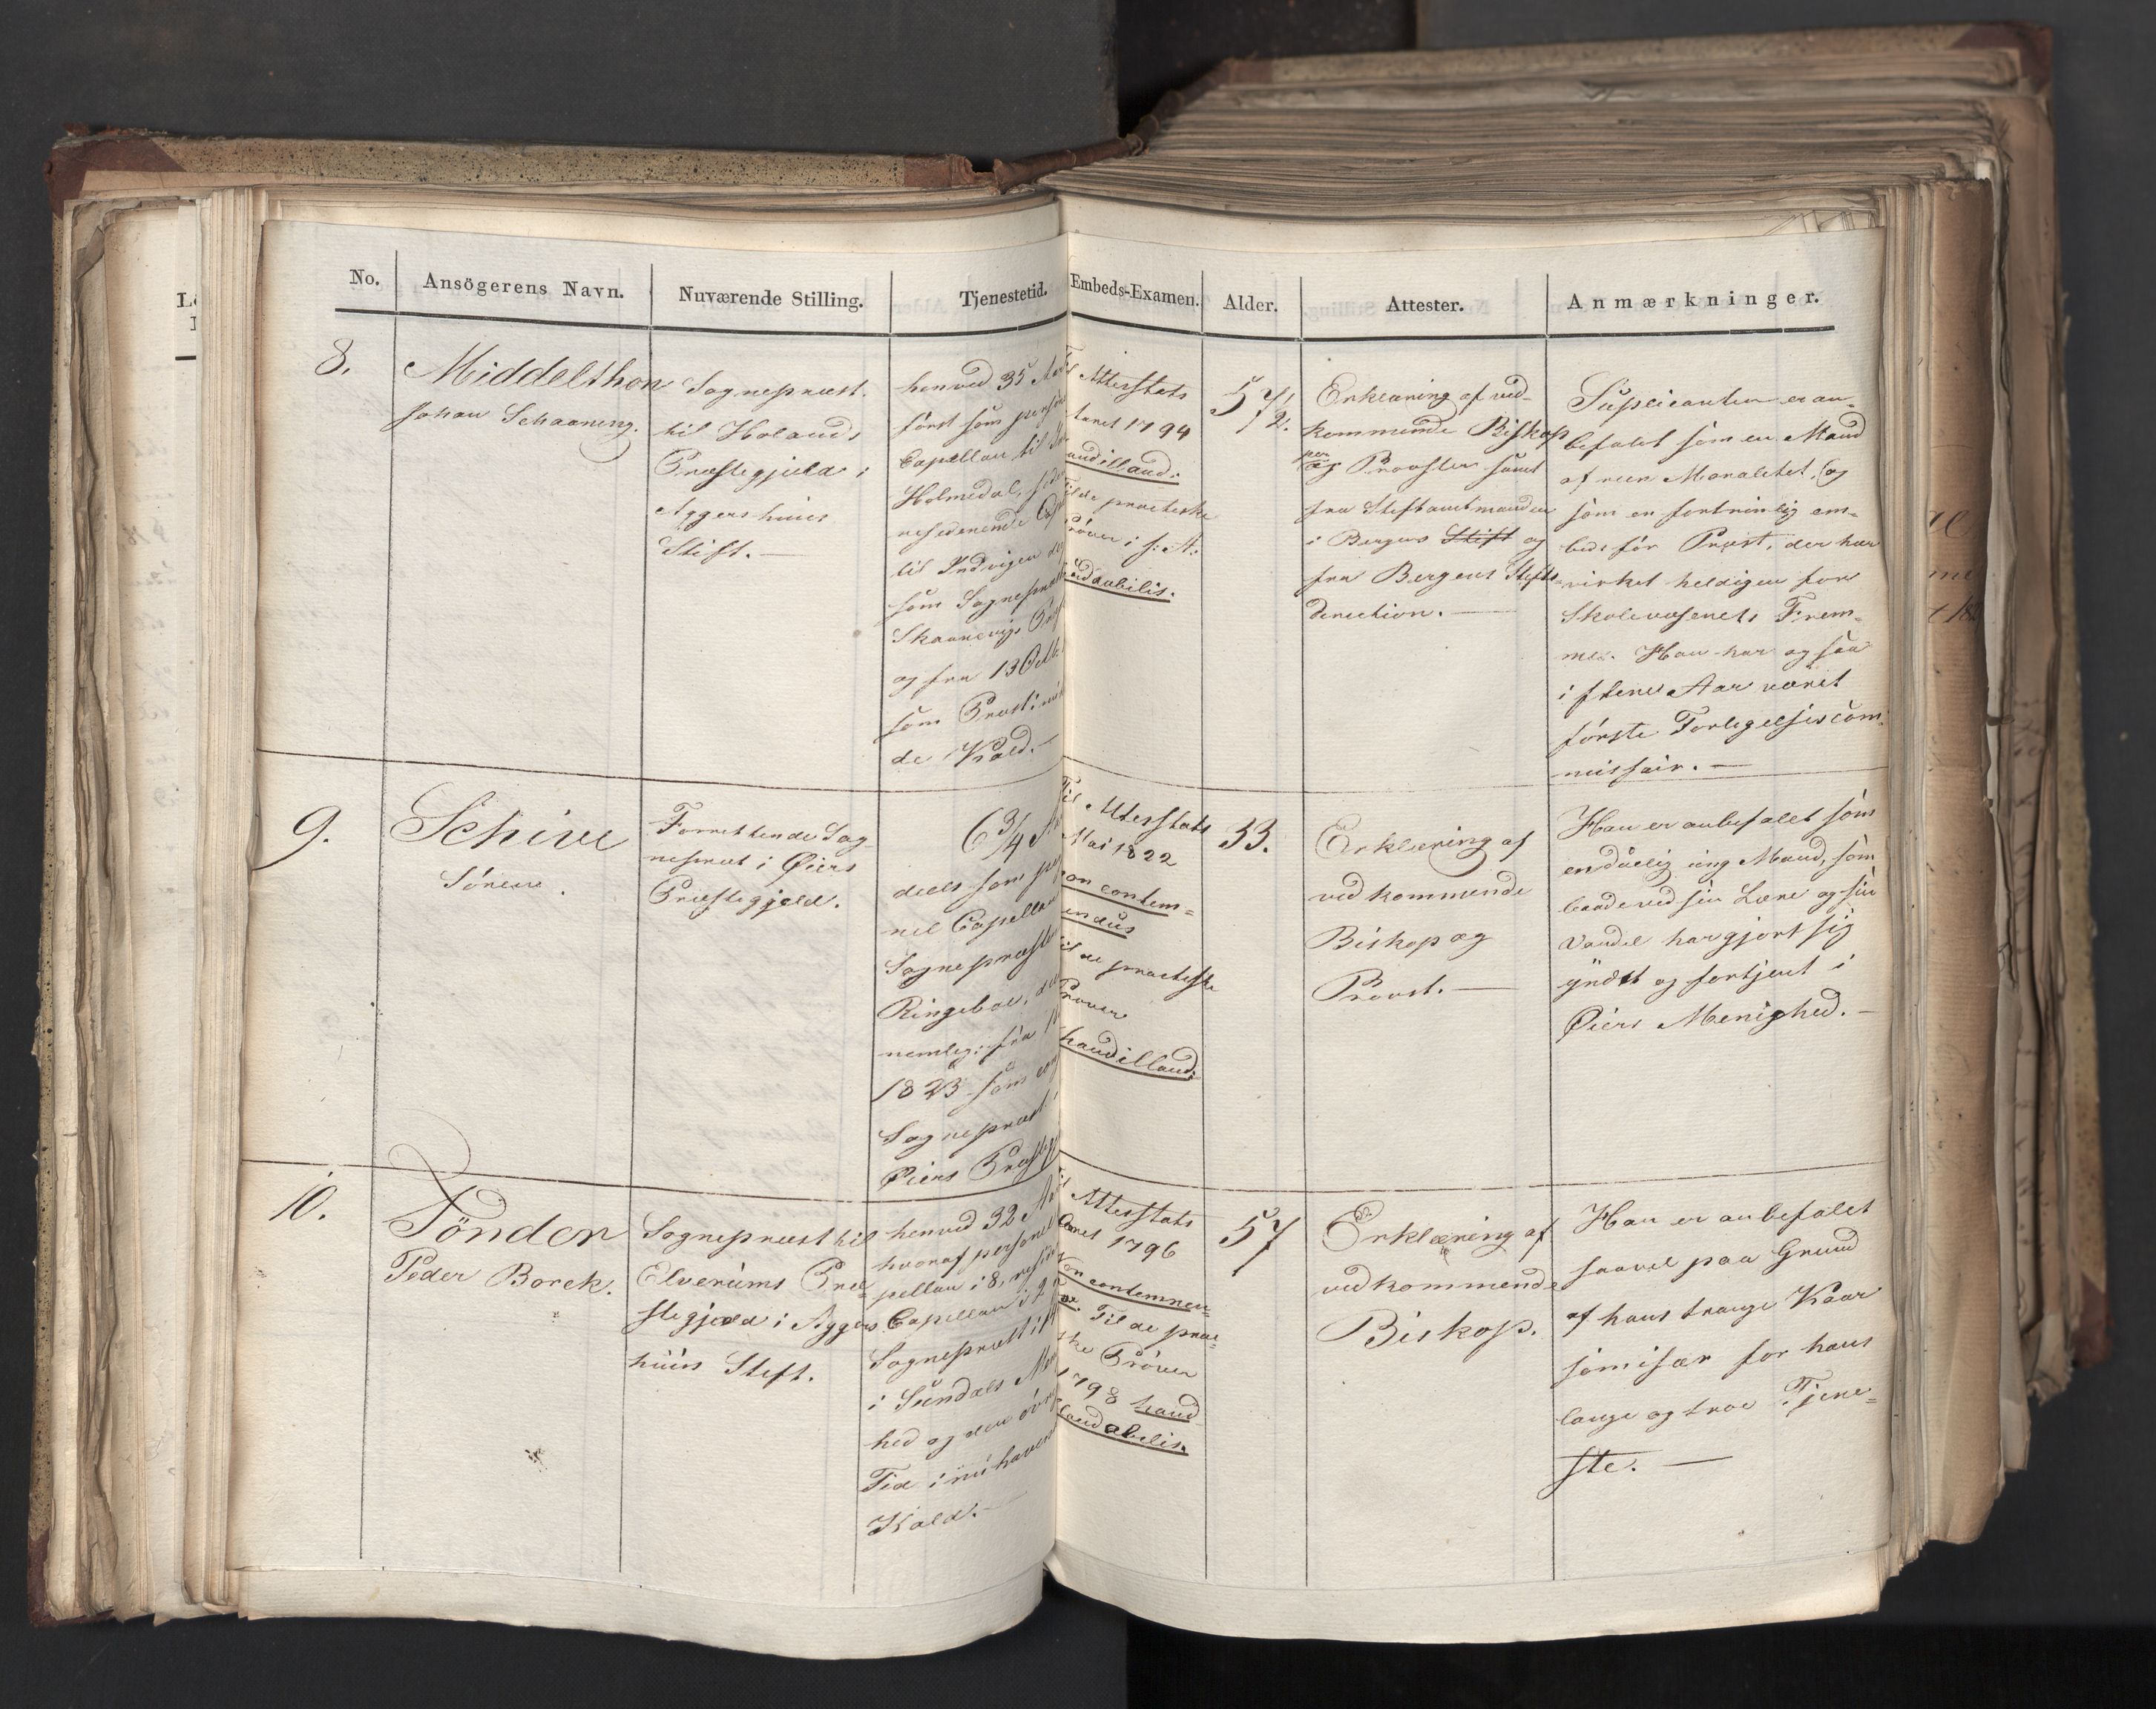 No.
Ansögerens Navn.
Nuværende Stilling.
Tjenestetid.
Embeds-Examen.
Alder.
Attester.
Anmærkninger.
8.
Middelthon
Johan Schaaning.
Sognepræst
til Hølands
Præstegjeld i
Aggershuus
Stift. —
henved 35
først som
Capellan til
Holmedal,
residerende
til Indvigen
som Sognepræst
Skaanevigs
og fra 13 Octbr
som Præst i
de Kald. —
Attestats
taret 1794
haud illaud:
de practiske
Prøver i s: A:
laudabilis.
57½.
Erklæring af ved-
kommende Biskop
og Provster samt
fra Stiftamtmanden
i Bergens Stift og
fra Bergens Stifts-
direction. —
Suplicanten er an-
befalet som en Mand
af reen Moralitet, og
som en fortrinlig em-
beds før Præst, der har
virket heldigen for
Skolevæsenets Frem-
me. Han har og saa
i flere Aar været
første Forligelsescom-
missair. —
9.
Schive
Sören.
Forrettende Sog-
nepræst i Øiers
Præstegjeld.
6¾
deels som
nel Capellan
Sognepræsten
Ringeboe,
nemlig: fra
1823 som
Sognepræst i
Øiers
Til Attestats
Mai 1822
non contem-
nendus
til de practiske
Prøver
haud illaud:
33.
Erklæring af
vedkommende
Biskop og
Provst. —
Han er anbefalet som
en duelig ung Mand, som
baade ved sin Lære og sin
Vandel har gjort sig
yndet og fortjent i
Øiers Menighed. —
10.
Tönder
Peder Borck.
Sognepræst til
Elverums Præ-
stegjeld i Aggers
huus Stift.
henved 32
hvoraf personel
pellan i 8,
Capellan i 2
Sognepræst i
i Sundals
hed og den
Tid i nu havende
Kald. —
Til Attestats
Aaret 1796
Non contemnen-
Til de prac-
ske Prøver
1798 haud
laudabilis.
57
Erklæring af
vedkommende
Biskop.
Han er anbefalet
saavel paa Grund
af hans trange Kaar
som især for hans
lange og troe Tjene-
ste. —